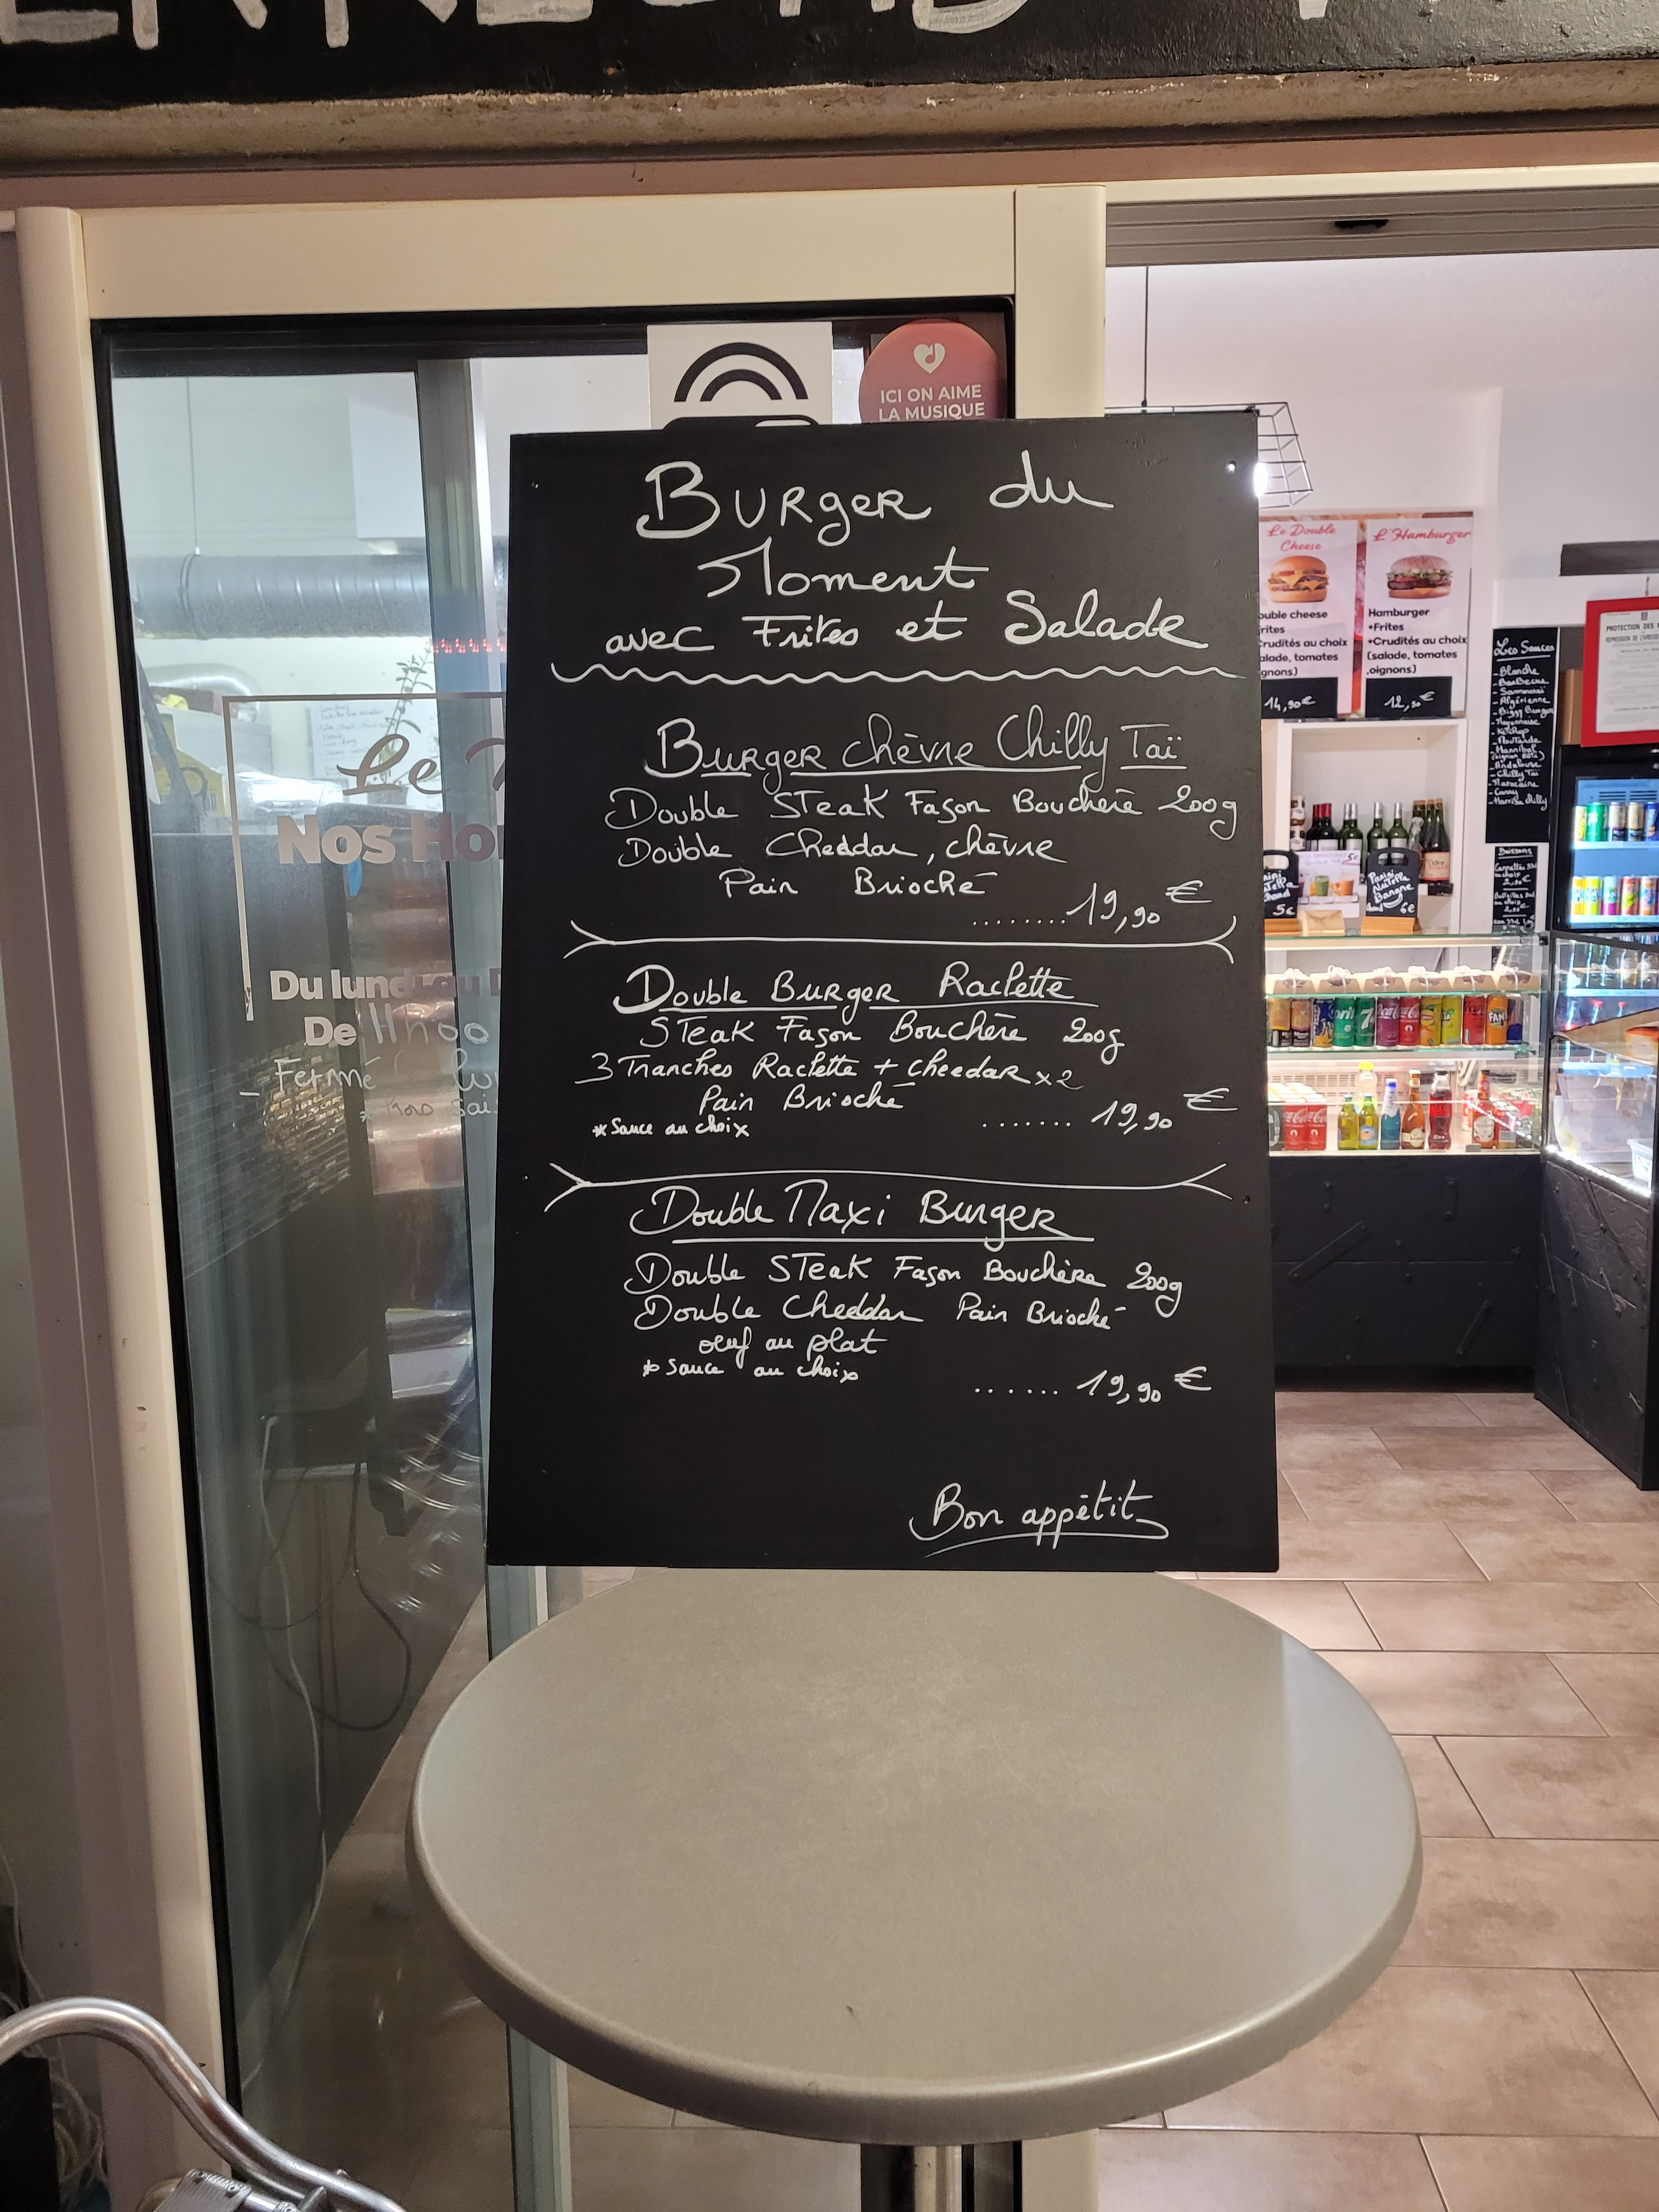 ICI ON AIME
LA MUSIQUE
Burger du
Moment
avec Frites et Salade
Burger chèvre Chilly Taï
Double Steak Façon Bouchère 200g
Double Cheddar, chèvre
Pain Brioché
........19,90 €
Double Burger Raclette
Steak Façon Bouchère 200g
3 Tranches Raclette + cheedar x2
Pain Brioché
*Sauce au choix
....... 19,90 €
Double Maxi Burger
Double Steak Façon Bouchère 200g
Double Cheddar Pain Brioché
oeuf au plat
*Sauce au choix
...... 19,90 €
Bon appétit
Le
Nos Ho
Du lundi au
De 11h00
- Fermé
Le Double
Cheese
ouble cheese
rites
rudités au choix
alade, tomates
gnons)
14,90€
L'Hamburger
Hamburger
+Frites
+Crudités au choix
(salade, tomates
,oignons)
12,50€
Les Sauces
- Blanche
- Barbecue
- Samouraï
- Algérienne
- Biggy Burger
- Mayonnaise
- Ketchup
- Moutarde
- Hannibal
- Andalouse
- Chilly Taï
- Marocaine
- Curry
- Harissa chilly
Boissons
Panini
Nutella
Banane
6€
5€
PROTECTION DES